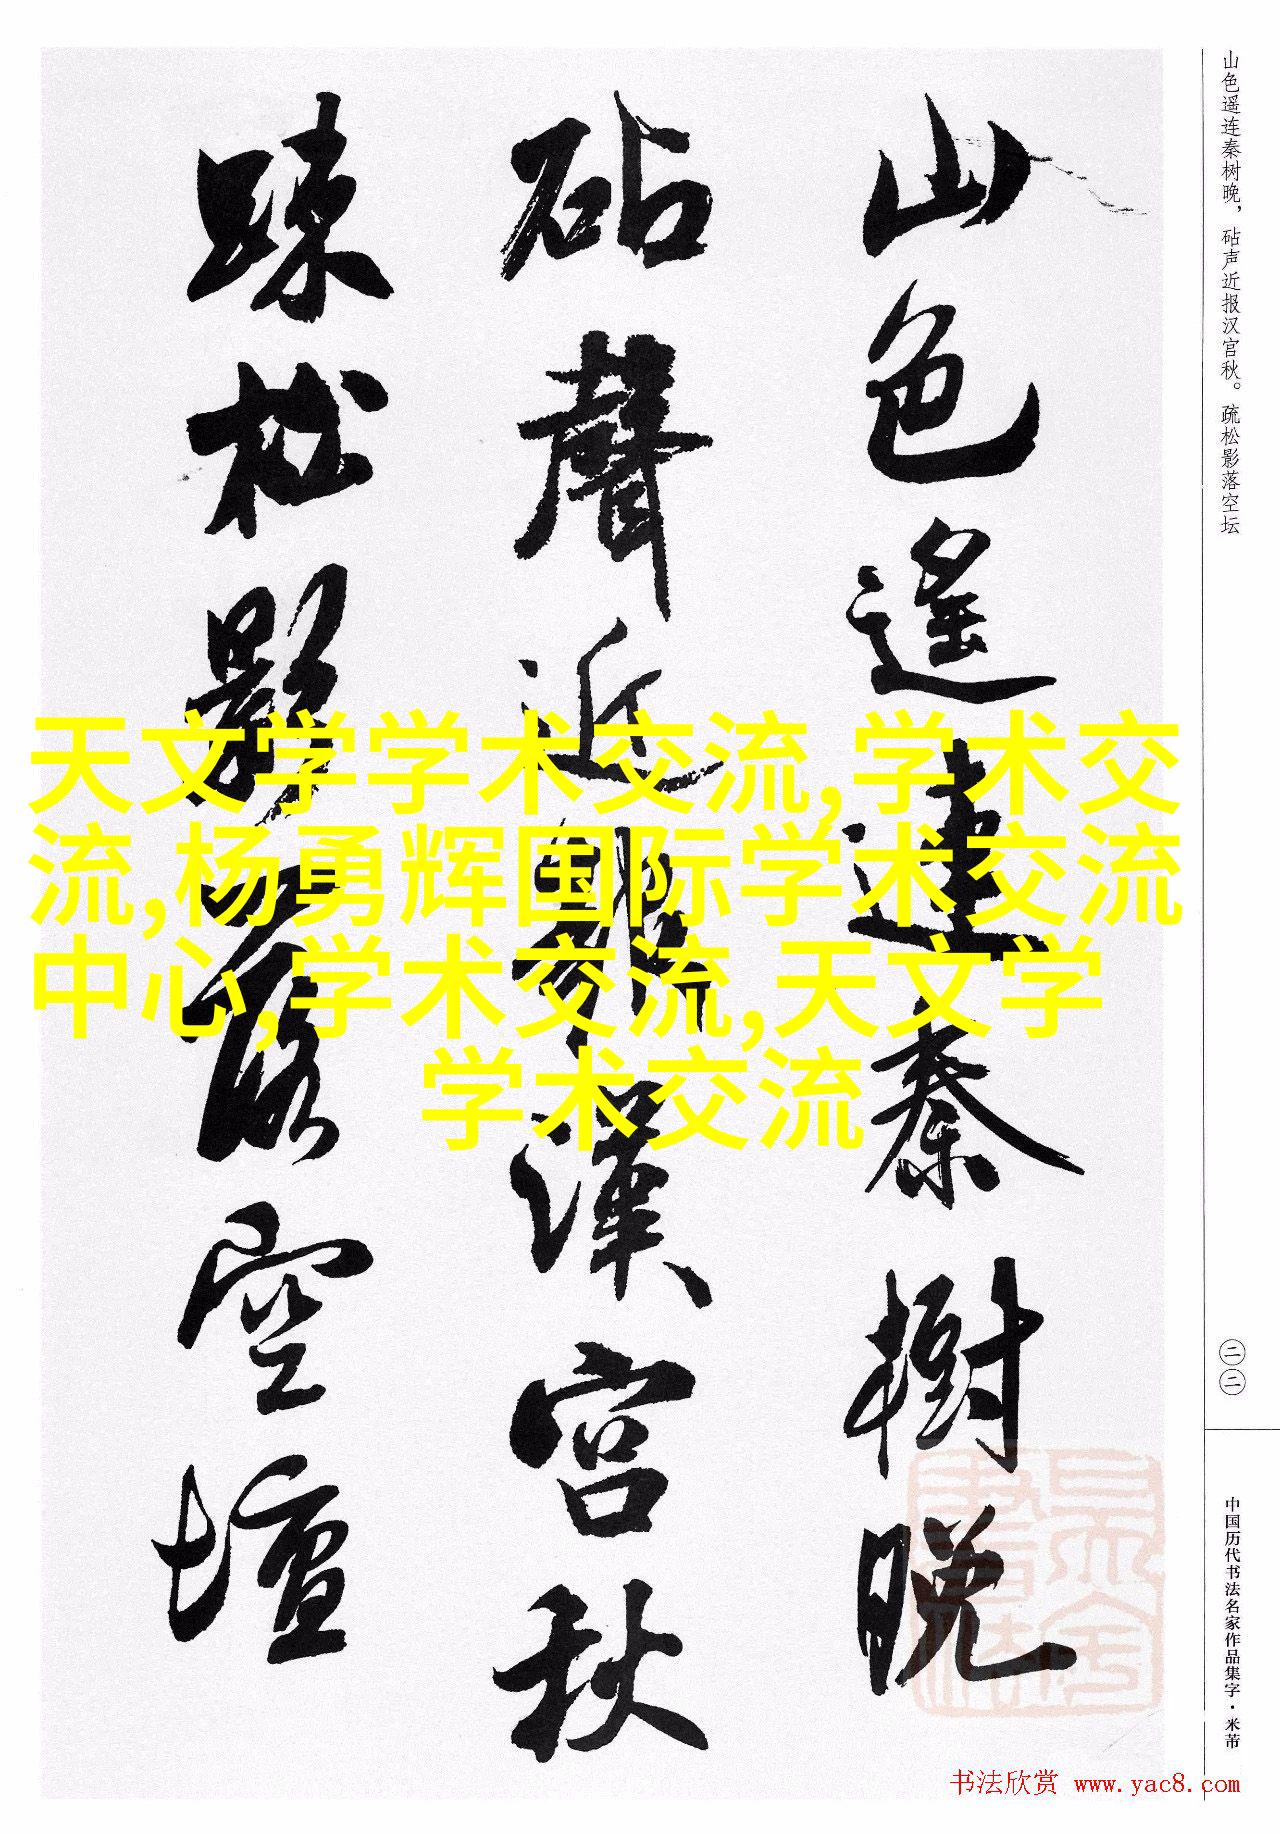 山色遥连秦树晚，砧声近报汉宫秋。疏松影落空坛
山色遥連秦樹晚
砧聲近報漢宮秋
踈松影落空壇
天文学学术交流,学术交
流,杨勇辉国际学术交流
中心,学术交流,天文学
学术交流
二二
中国历代书法名家作品集字·米芾
书法欣赏 www.yac8.com